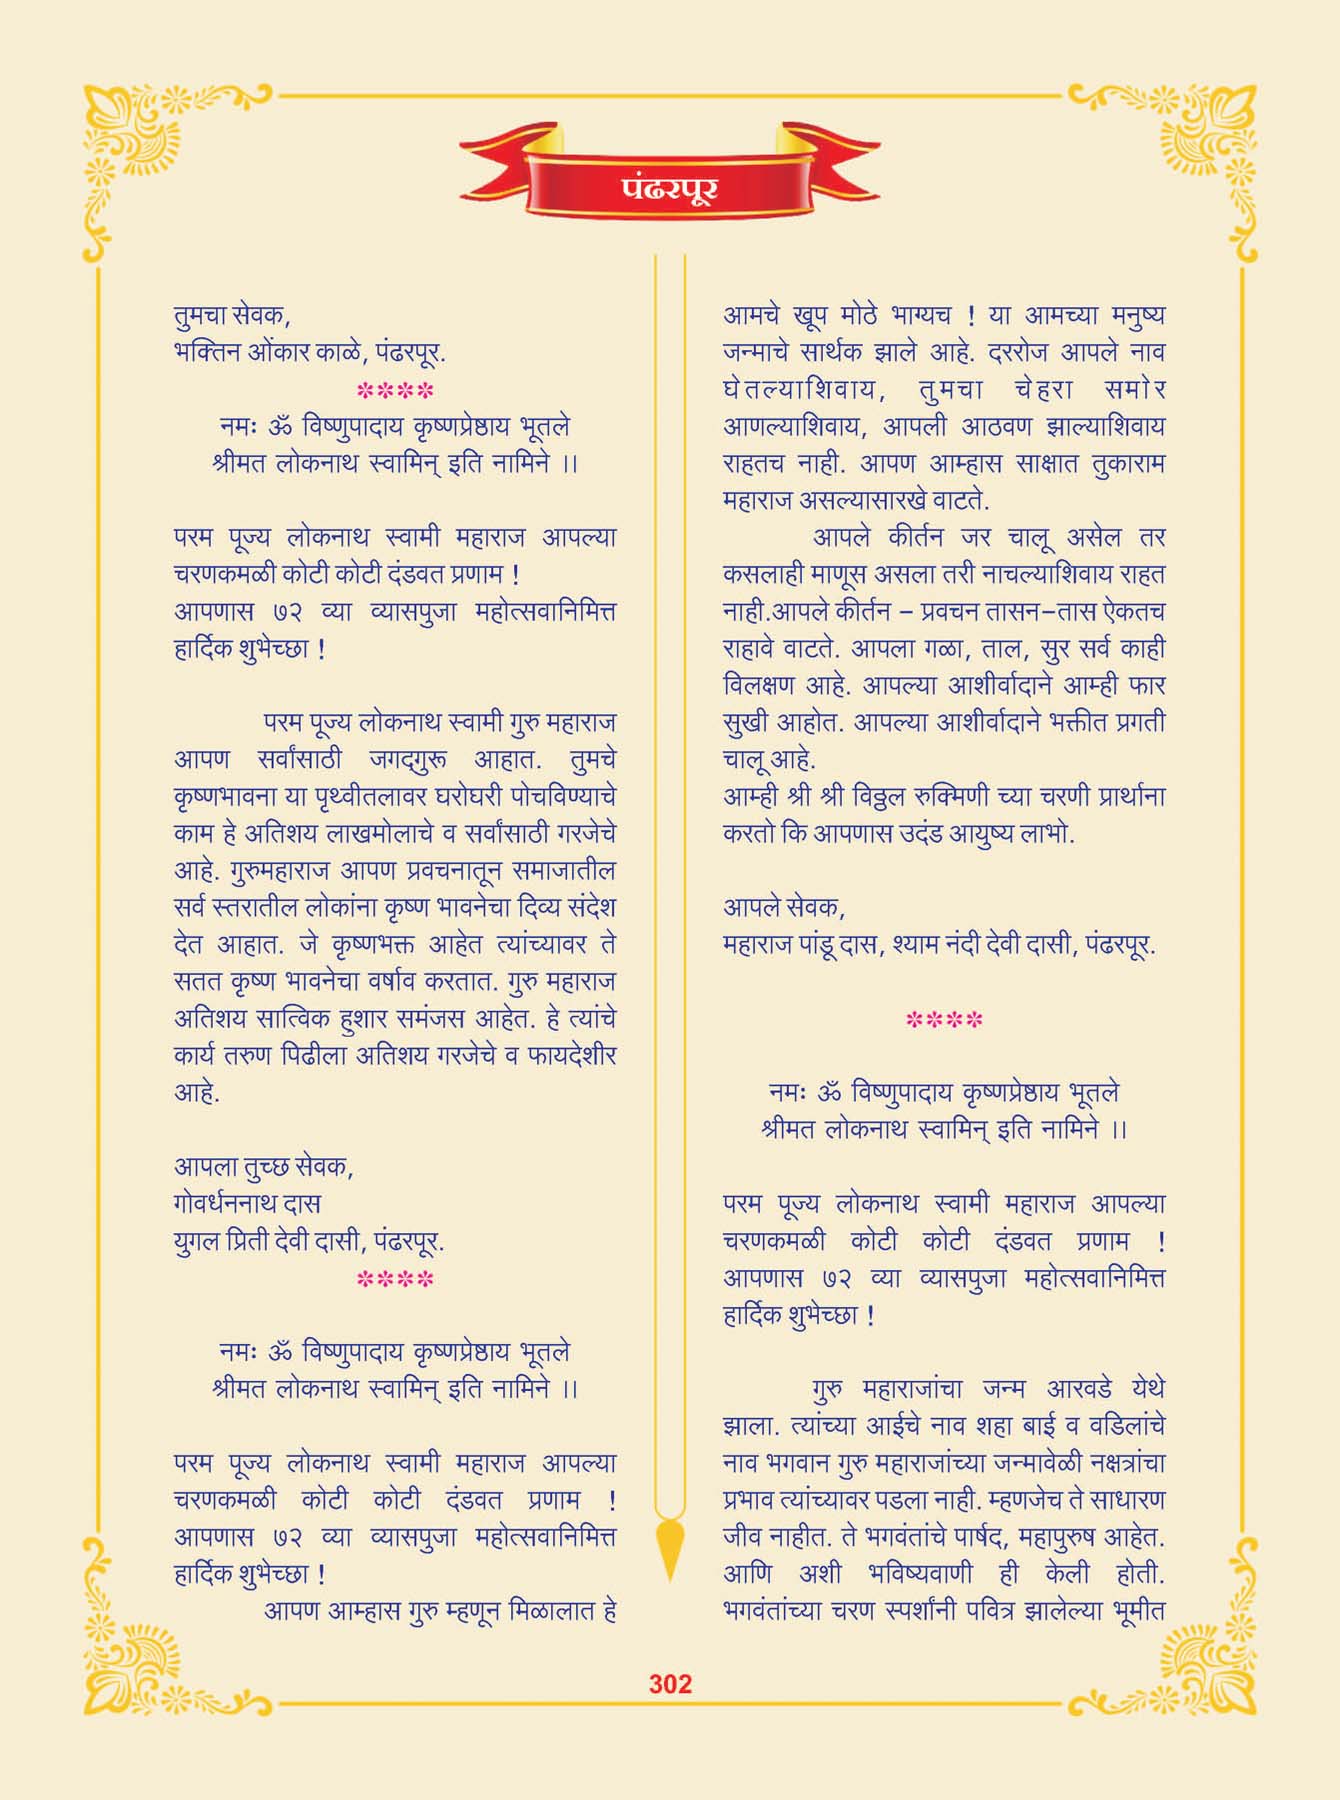 पंढरपूर
तुमचा सेवक,
भक्तिन ओंकार काळे, पंढरपूर.
****
नमः ॐ विष्णुपादाय कृष्णप्रेष्ठाय भूतले
श्रीमत लोकनाथ स्वामिन् इति नामिने ।।
परम पूज्य लोकनाथ स्वामी महाराज आपल्या
चरणकमळी कोटी कोटी दंडवत प्रणाम !
आपणास ७२ व्या व्यासपुजा महोत्सवानिमित्त
हार्दिक शुभेच्छा !
परम पूज्य लोकनाथ स्वामी गुरु महाराज
आपण सर्वांसाठी जगद्‌गुरू आहात. तुमचे
कृष्णभावना या पृथ्वीतलावर घरोघरी पोचविण्याचे
काम हे अतिशय लाखमोलाचे व सर्वांसाठी गरजेचे
आहे. गुरुमहाराज आपण प्रवचनातून समाजातील
सर्व स्तरातील लोकांना कृष्ण भावनेचा दिव्य संदेश
देत आहात. जे कृष्णभक्त आहेत त्यांच्यावर ते
सतत कृष्ण भावनेचा वर्षाव करतात. गुरु महाराज
अतिशय सात्विक हुशार समंजस आहेत. हे त्यांचे
कार्य तरुण पिढीला अतिशय गरजेचे व फायदेशीर
आहे.
आपला तुच्छ सेवक,
गोवर्धननाथ दास
युगल प्रिती देवी दासी, पंढरपूर.
****
नमः ॐ विष्णुपादाय कृष्णप्रेष्ठाय भूतले
श्रीमत लोकनाथ स्वामिन् इति नामिने ।।
परम पूज्य लोकनाथ स्वामी महाराज आपल्या
चरणकमळी कोटी कोटी दंडवत प्रणाम !
आपणास ७२ व्या व्यासपुजा महोत्सवानिमित्त
हार्दिक शुभेच्छा !
आपण आम्हास गुरु म्हणून मिळालात हे
आमचे खूप मोठे भाग्यच ! या आमच्या मनुष्य
जन्माचे सार्थक झाले आहे. दररोज आपले नाव
घेतल्याशिवाय, तुमचा चेहरा समोर
आणल्याशिवाय, आपली आठवण झाल्याशिवाय
राहतच नाही. आपण आम्हास साक्षात तुकाराम
महाराज असल्यासारखे वाटते.
आपले कीर्तन जर चालू असेल तर
कसलाही माणूस असला तरी नाचल्याशिवाय राहत
नाही.आपले कीर्तन – प्रवचन तासन–तास ऐकतच
राहावे वाटते. आपला गळा, ताल, सुर सर्व काही
विलक्षण आहे. आपल्या आशीर्वादाने आम्ही फार
सुखी आहोत. आपल्या आशीर्वादाने भक्तीत प्रगती
चालू आहे.
आम्ही श्री श्री विठ्ठल रुक्मिणी च्या चरणी प्रार्थाना
करतो कि आपणास उदंड आयुष्य लाभो.
आपले सेवक,
महाराज पांडू दास, श्याम नंदी देवी दासी, पंढरपूर.
****
नमः ॐ विष्णुपादाय कृष्णप्रेष्ठाय भूतले
श्रीमत लोकनाथ स्वामिन् इति नामिने ।।
परम पूज्य लोकनाथ स्वामी महाराज आपल्या
चरणकमळी कोटी कोटी दंडवत प्रणाम !
आपणास ७२ व्या व्यासपुजा महोत्सवानिमित्त
हार्दिक शुभेच्छा !
गुरु महाराजांचा जन्म आरवडे येथे
झाला. त्यांच्या आईचे नाव शहा बाई व वडिलांचे
नाव भगवान गुरु महाराजांच्या जन्मावेळी नक्षत्रांचा
प्रभाव त्यांच्यावर पडला नाही. म्हणजेच ते साधारण
जीव नाहीत. ते भगवंतांचे पार्षद, महापुरुष आहेत.
आणि अशी भविष्यवाणी ही केली होती.
भगवंतांच्या चरण स्पर्शांनी पवित्र झालेल्या भूमीत
302